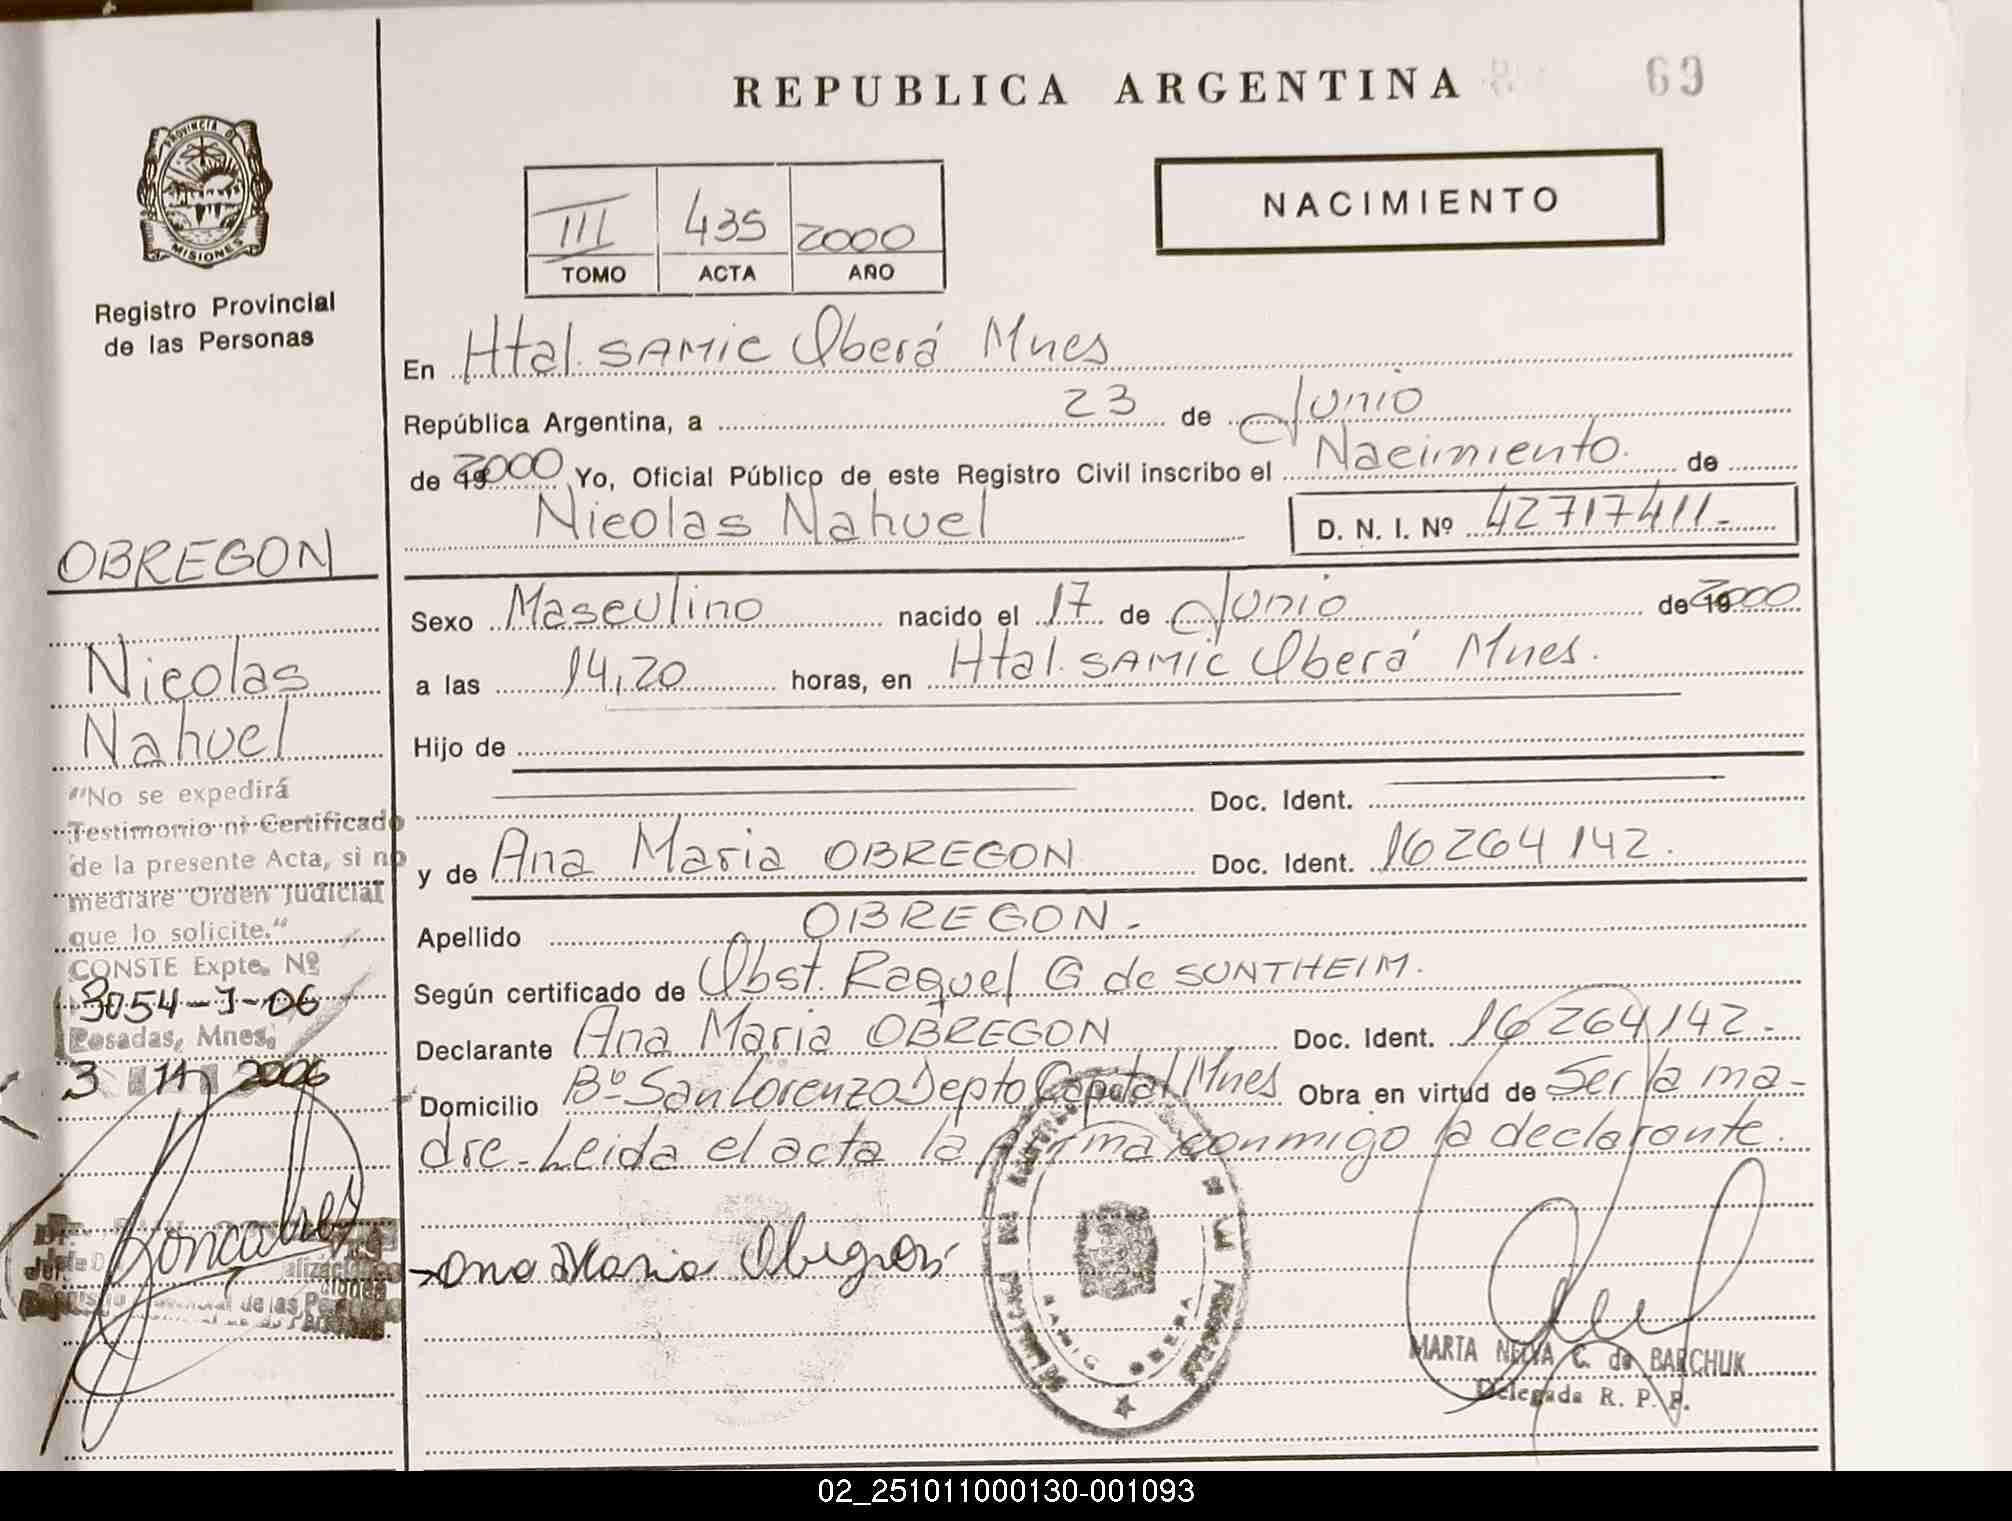 REPUBLICA ARGENTINA
69
PROVINCIA D
MISIONES
Registro Provincial
de las Personas
NACIMIENTO
III 435 2000
TOMO ACTA AÑO
En Htal. SAMIC Oberá Mnes
República Argentina, a 23 de Junio
de 2000 Yo, Oficial Público de este Registro Civil inscribo el Nacimiento. de
Nicolas Nahuel
D. N. I. Nº 42717411-
OBREGON
Nicolas
Nahuel
Sexo Masculino nacido el 17 de Junio de 2000
a las 14,20 horas, en Htal. SAMIC Oberá Mnes.
Hijo de
Doc. Ident.
y de Ana Maria OBREGON Doc. Ident. 16264142.
Apellido OBREGON-
Según certificado de Obst. Raquel G de SUNTHEIM.
Declarante Ana Maria OBREGON Doc. Ident. 16264142-
Domicilio Bº San Lorenzo Depto Capital Mnes Obra en virtud de Ser la ma-
dre-Leida el acta la firma conmigo la declarante.
"No se expedirá
Testimonio ni Certificado
de la presente Acta, si no
mediare Orden Judicial
que lo solicite."
CONSTE Expte. Nº
3054-J-06
Posadas, Mnes,
3 11 2006
Goncalves
de las Pe
Ana Maria Obregon
SAMIC OBERA
MARTA NELVA C. de BARCHUK
Delegada R. P. P.
02_251011000130-001093